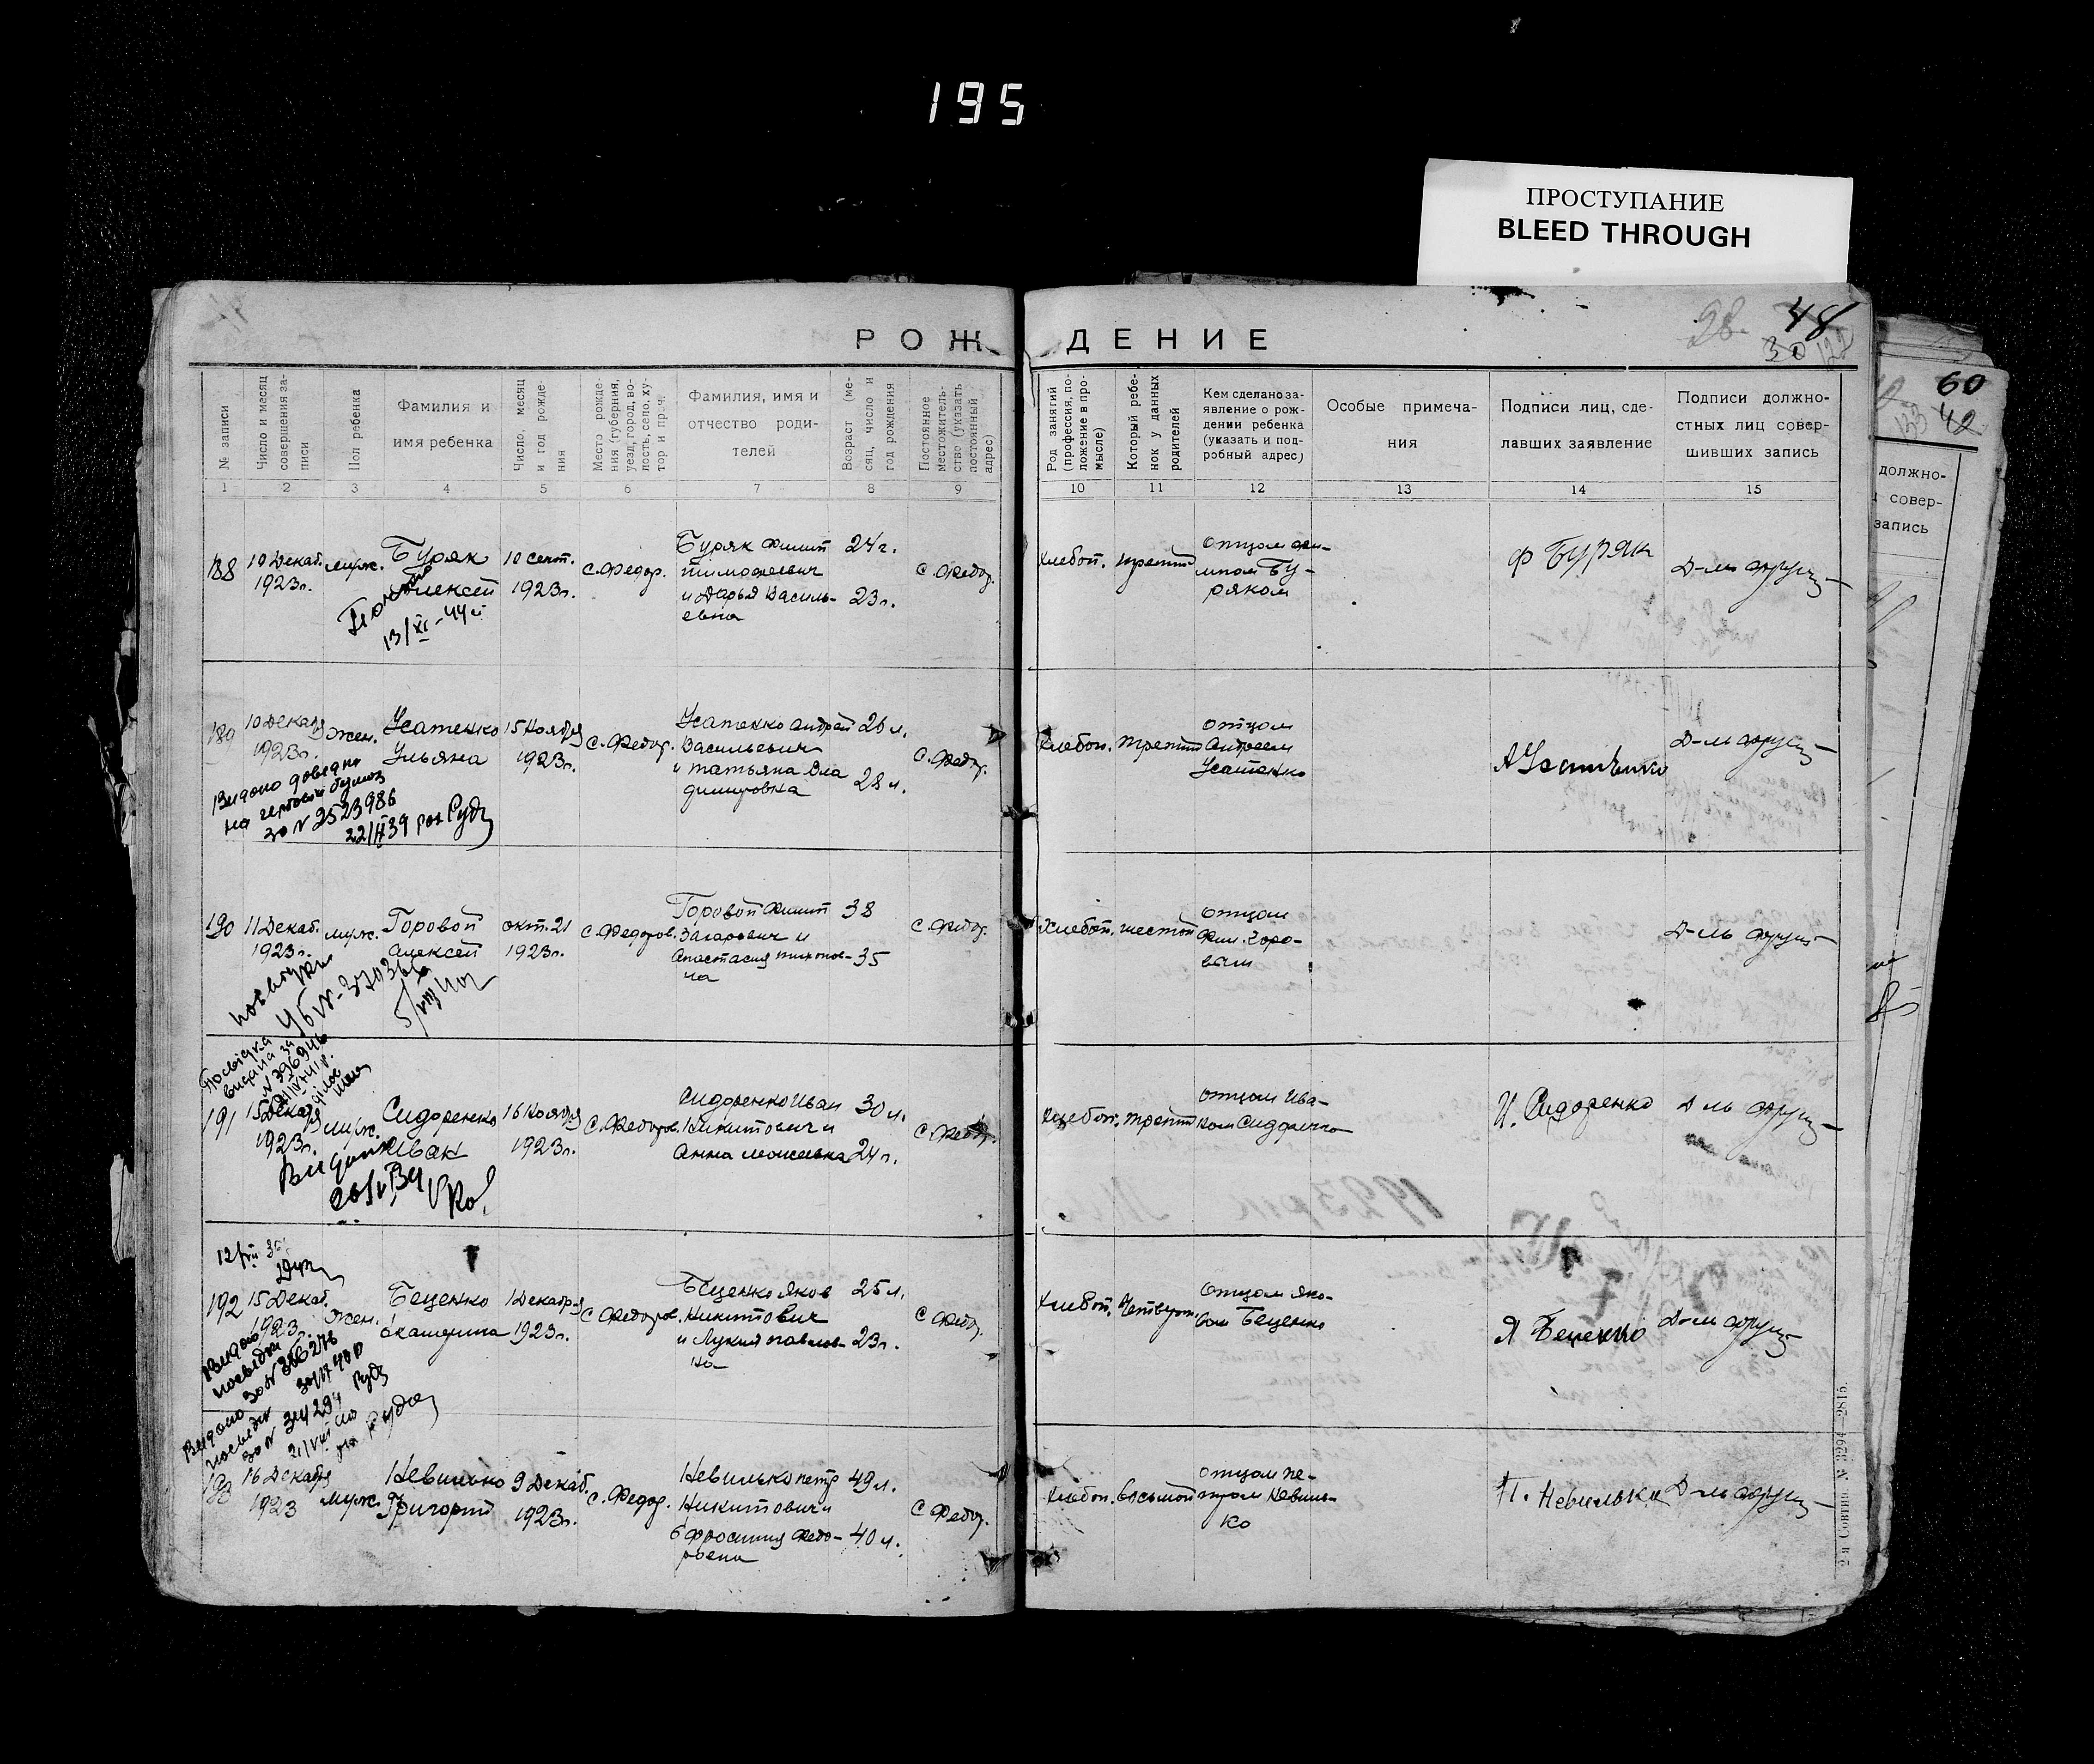 195
ПРОСТУПАНИЕ
BLEED THROUGH
РОЖДЕНИЕ
28. 48
30 122
60
133 42
№ записи
Число и месяц совершения записи
Пол ребенка
Фамилия и
имя ребенка
Число, месяц и год рождения
Место рождения (губерния, уезд, город, волость, село, хутор и проч.
Фамилия, имя и
отчество роди-
телей
Возраст (месяц, число и год рождения
Постоянное местожительство (указать постоянный адрес)
Род занятий (профессия, положение в промысле)
Который ребенок у данных родителей
Кем сделано за-
явление о рож-
дении ребенка
(указать и под-
робный адрес)
Особые примеча-
ния
Подписи лиц, сде-
лавших заявление
Подписи должно-
стных лиц совер-
шивших запись
должно-
совер-
запись
1 2 3 4 5 6 7 8 9 10 11 12 13 14 15
188
10 Декаб.
1923г.
муж.
Буряк
Алексей
13/XI-44
10 сент.
1923г.
с. Федор.
Буряк Филип
Тимофеевич
и Дарья Василь-
евна
24г.
23г.
с. Федор.
Хлебоп.
третий
отцом Фи-
липом Бу-
ряком
Ф Буряк
189
10 Декабря
1923г.
жен.
Усатенко
Ульяна
15 Ноября
1923г.
с. Федор.
Усатенко Андрей
Васильевич
и Татьяна Вла
димировна
26 л.
28 л.
с. Федор.
Хлебоп.
третий
отцом
Андреем
Усатенко
А Усатенко
Видано довідку
на гербовій бумаз
за № 2523986
190
11 Декаб.
1923г.
муж.
Горовой
Алексей
окт. 21
1923г.
с. Федоров.
Горовой Филип
Захарович и
Анастасия Тихонов-
на
38
35
с. Федор.
Хлебоп.
шестой
отцом
Фил. Горо-
вым
191
15 Декабря
1923г.
муж.
Сидоренко
Иван
16 Ноября
1923г.
с. Федоров.
Сидоренко Иван
Никитович и
Анна Моисеевна
30 л.
24 г.
с. Федор.
Хлебоп.
третий
отцом Ива-
ном Сидоренко
И. Сидоренко
192
15 Декаб.
1923г.
жен.
Беценко
Екатерина
1 Декабря
1923г.
с. Федоров.
Беценко Яков
Никитович
и Лукия Павлов-
на
25 л.
23г.
с. Федор.
Хлебоп.
Четверт.
отцом Яко-
вом Беценко
Я Беценко
Видано
посвідку
за № 356276
Видано
посвідку
193
16 Декабря
1923
муж.
Невилько
Григорий
9 Декаб.
1923г.
с. Федор.
Невилько Петр
Никитович и
Ефросиния Федо-
ровна
49 л.
40 л.
с. Федор.
Хлебоп.
восьмой
отцом Пе-
тром Невиль-
ко
П. Невилько